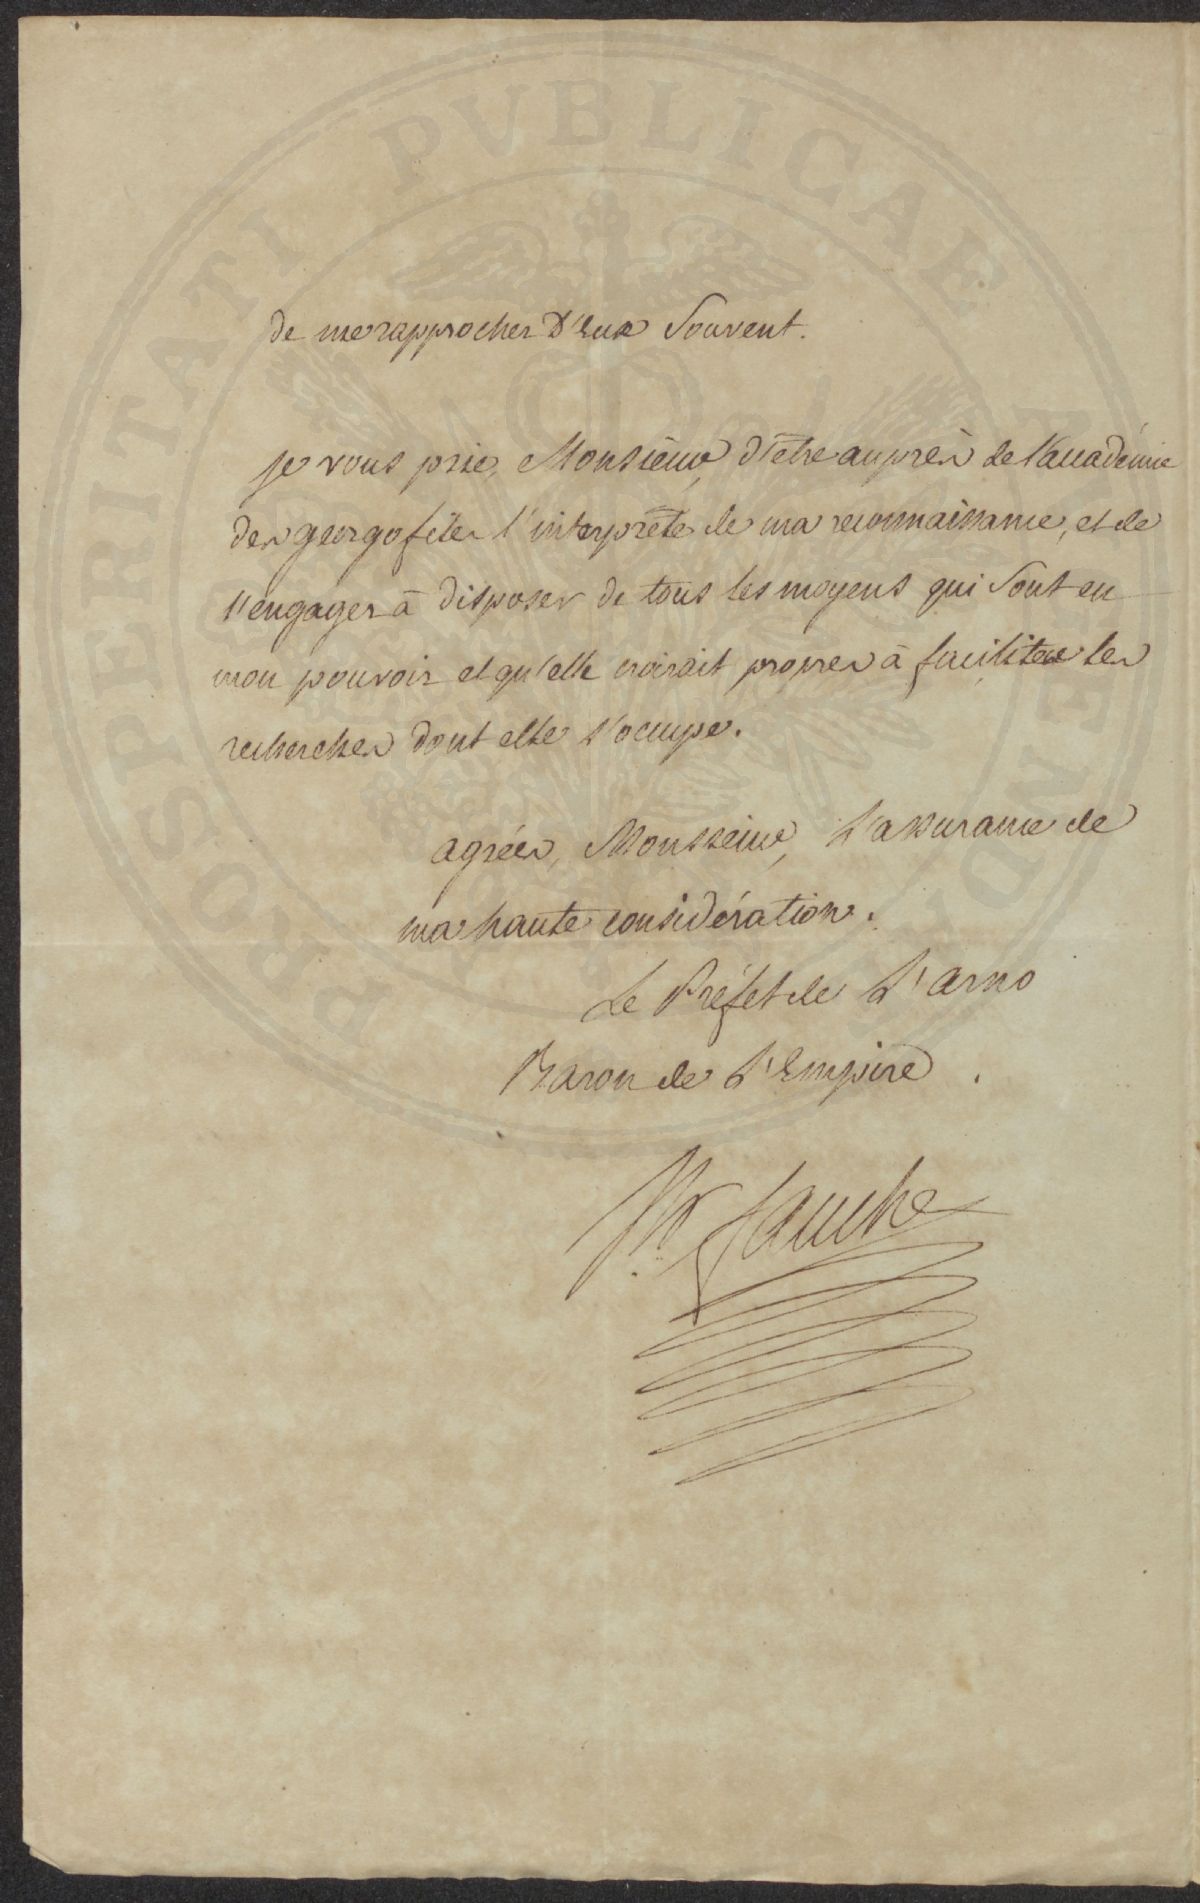 de me rapprocher d'Eux Souvent.
je vous prie, Monsieur, d'être auprès de l'accadémie
des georgofiles l'interprête de ma reconnaissance, et de
l'engager à disposer de tous les moyens qui Sont en
mon pouvoir et qu'elle croirait propres à faciliter les
recherches dont elle s'occupe.
agréez, Monsieur, L'assurance de
ma haute considération.
Le Préfet de L'arno
Baron de L'Empire.
Fauchet
PROSPERITATI PVBLICAE AVGENDAE